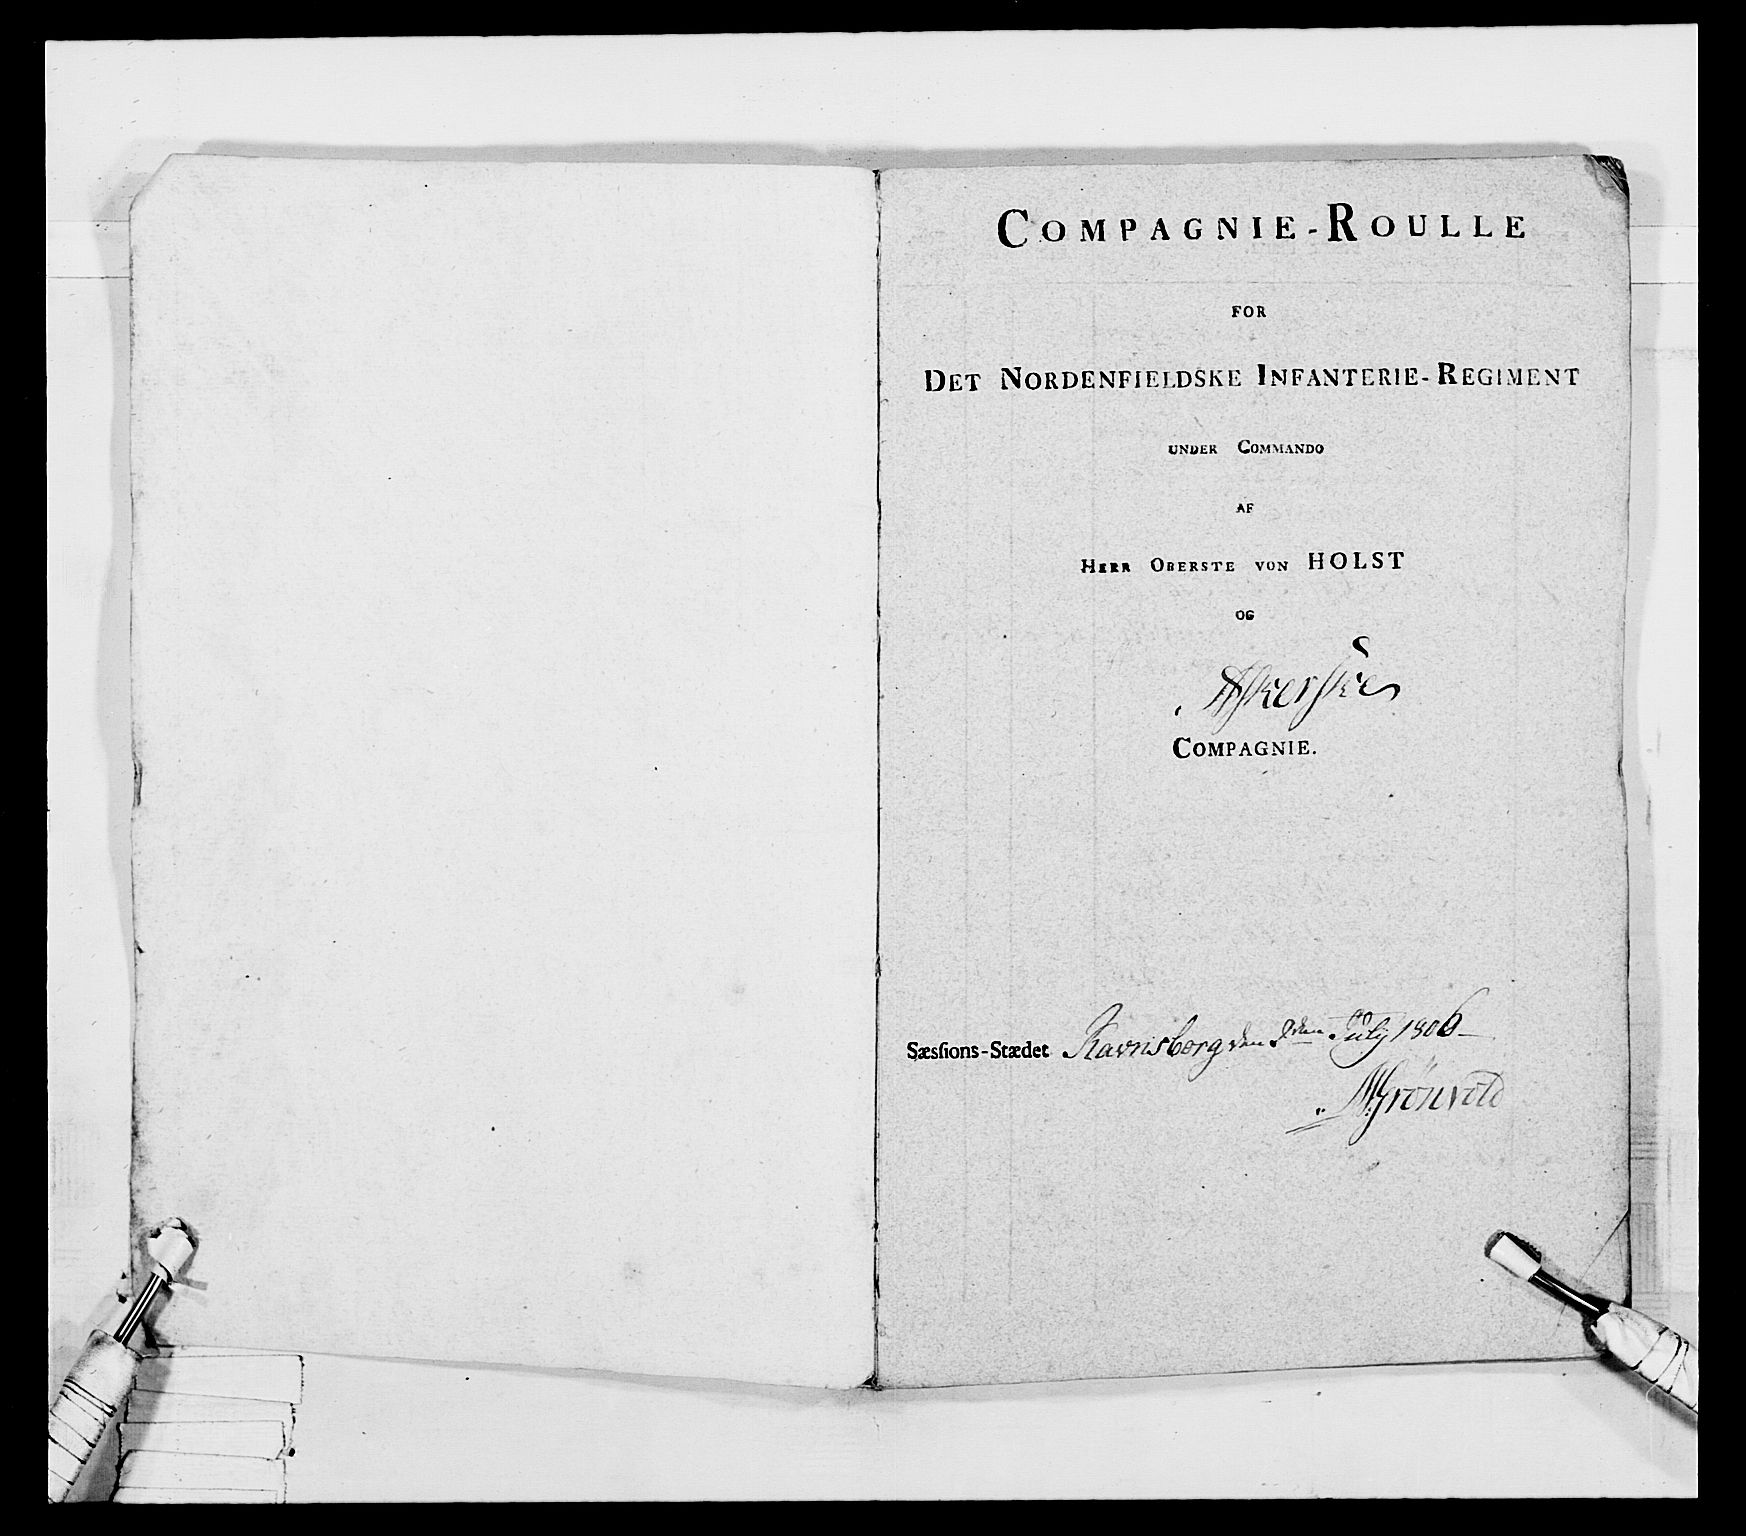 COMPAGNIE-ROULLE
FOR
DET NORDENFIELDSKE INFANTERIE-REGIMENT
UNDER COMMANDO
AF
HERR OBERSTE VON HOLST
OG
COMPAGNIE.
Sæsſions-Stædet Ravnsborg den 9den July 1806
Grönvold